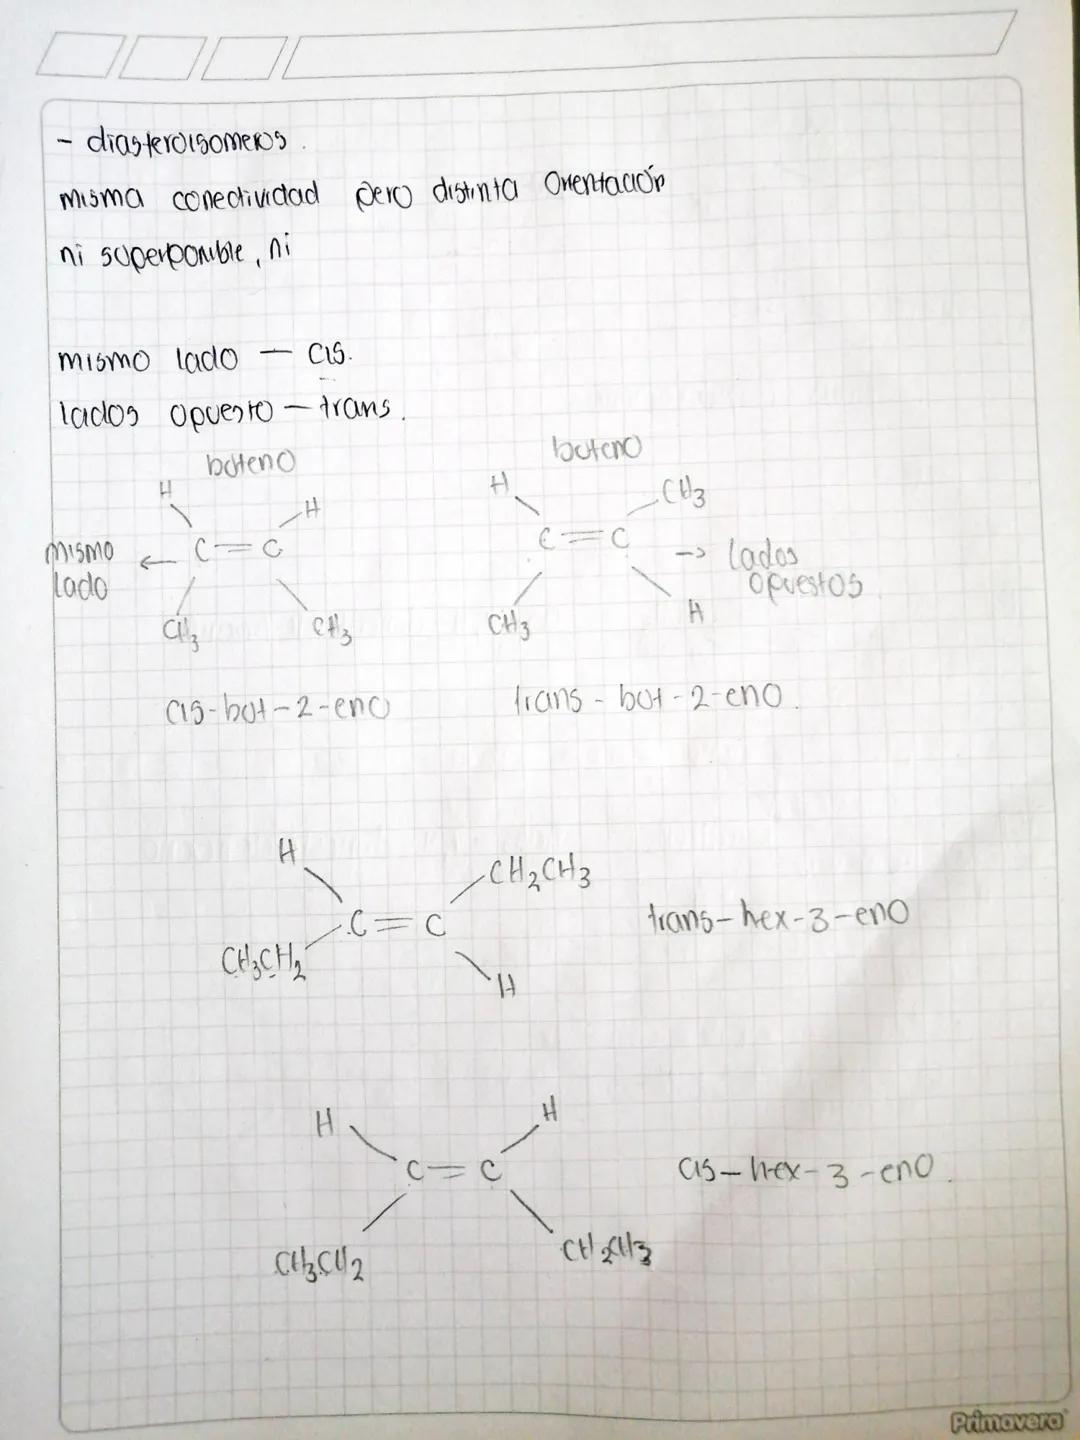 - diasteroisomeros.
misma conectividad pero distinta orientación
ni superponible, ni
mismo lado — cis.
lados opuesto — trans.
buteno
H H
mismo lado ← C = C
CH3 CH3
cis-but-2-eno
buteno
H CH3
C = C -> lados opuestos
CH3 H
trans-but-2-eno.
H CH2CH3
C = C
CH3CH2 H
trans-hex-3-eno
H H
C = C
CH3CH2 CH2CH3
cis-hex-3-eno.
Primavera